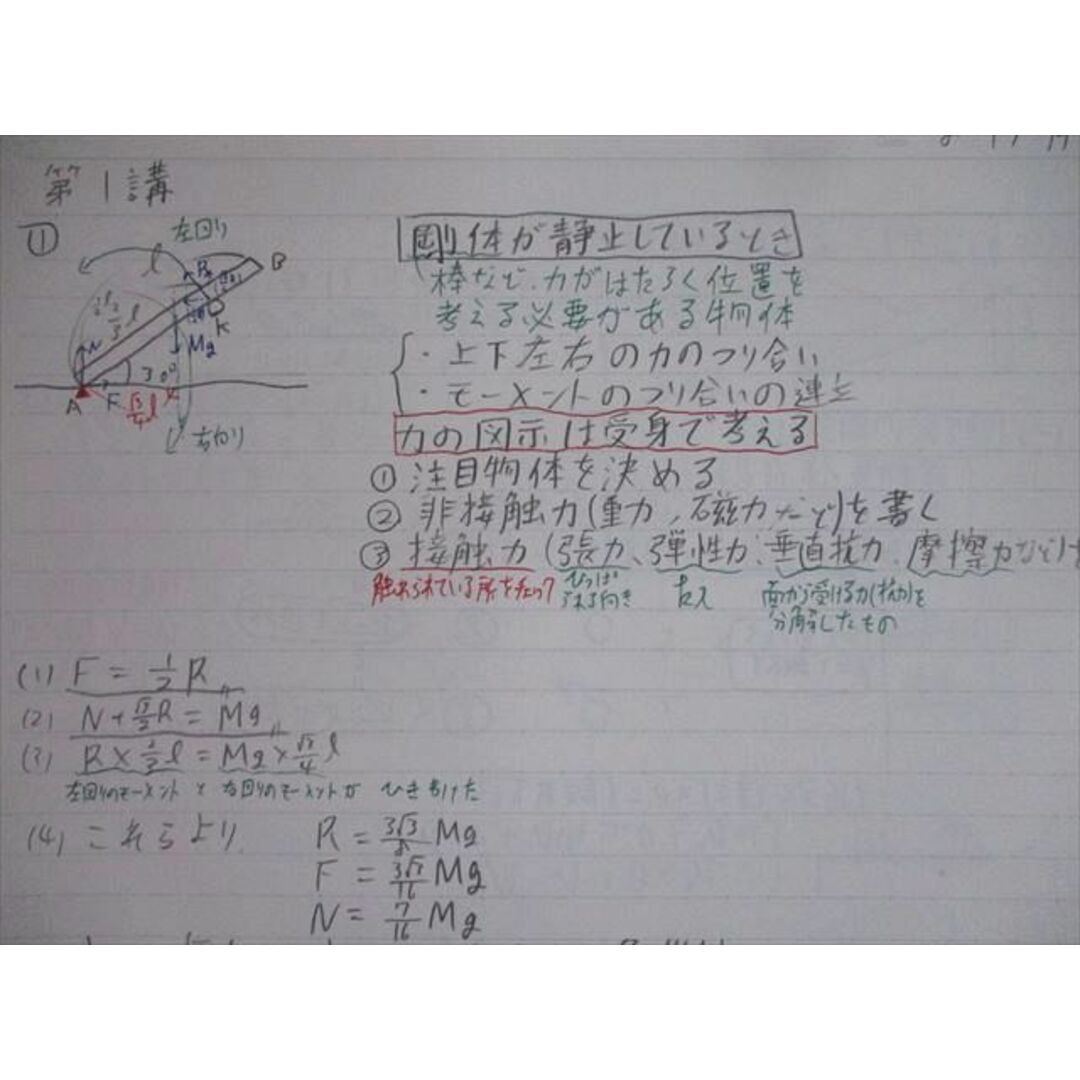 第1講
①
左回り
l
B
R
K
N
Mg
30°
A
F
√3/4 l
右回り
剛体が静止しているとき
棒など、力がはたらく位置を
考える必要がある物体
・上下左右の力のつり合い
・モーメントのつり合いの連立
力の図示は受身で考える
① 注目物体を決める
② 非接触力(重力、磁力など)を書く
③ 接触力(張力、弾性力、垂直抗力、摩擦力など)を
触れられている所をチェック
ひっぱられる向き
面から受ける力(抗力)を
分解したもの
(1) F = 1/2 R
(2) N + √3/2 R = Mg
(3) R × 2/3 l = Mg × √3/4 l
左回りのモーメント と 右回りのモーメントが
(4) これらより
R = 3√3/8 Mg
F = 3√3/16 Mg
N = 7/16 Mg